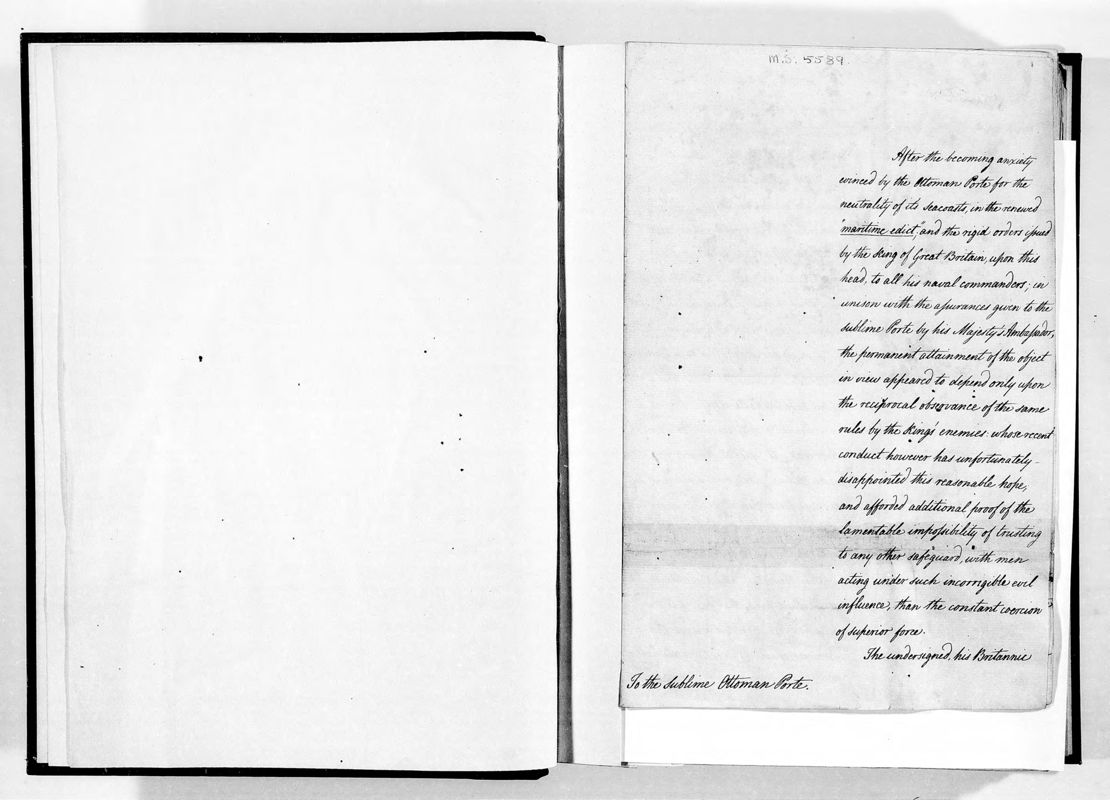 M.S. 5589.
After the becoming anxiety
evinced by the Ottoman Porte for the
neutrality of its seacoasts, in the renewed
"maritime edict", and the rigid orders issued
by the King of Great Britain, upon this
head, to all his naval commanders; in
unison with the assurances given to the
sublime Porte by his Majesty's Ambassador,
the permanent attainment of the object
in view appeared to depend only upon
the reciprocal observance of the same
rules by the Kings' enemies: whose recent
conduct however has unfortunately-
disappointed this reasonable hope,
and afforded additional proof of the
lamentable impossibility of trusting
to any other safeguard, with men
acting under such incorrigible evil
influence, than the constant coercion
of superior force.
The undersigned, his Britannic
To the sublime Ottoman Porte.